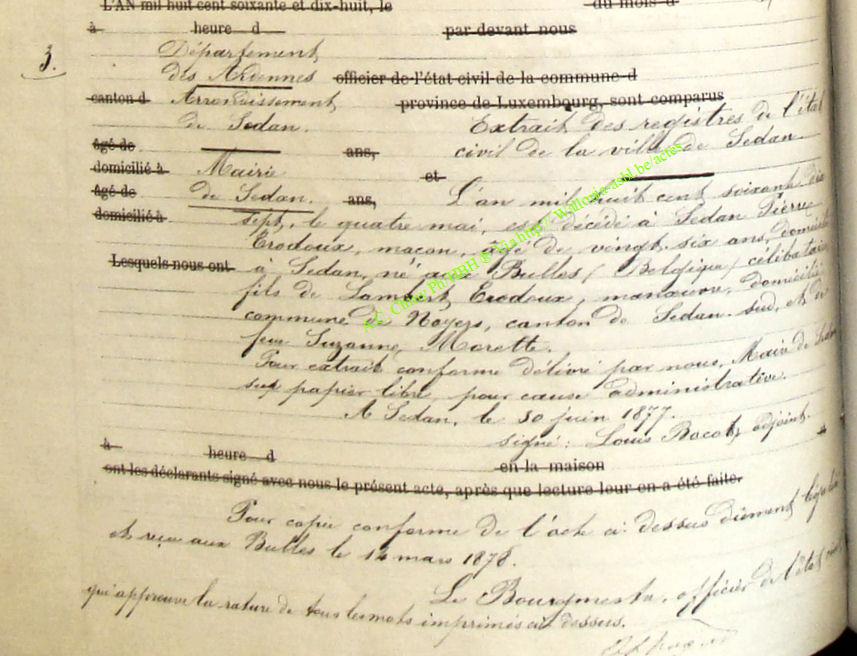 L'AN mil huit cent soixante et dix-huit, le du mois d
à heure d par devant nous
3.
Département
des Ardennes officier de l'état civil de la commune d
canton d Arrondissement province de Luxembourg, sont comparus
de Sedan. Extrait des registres de l'état
âgé de ans, civil de la ville de Sedan.
domicilié à Mairie et
âgé de de Sedan. ans, L'an mil huit cent soixante dix
domicilié à sept, le quatre mai, est décédé à Sedan Pierre
Erodoux, maçon, âgé de vingt-six ans, domicilié
Lesquels nous ont à Sedan, né aux Bulles (Belgique) célibataire
fils de Lambert Erodoux, manœuvre, domicilié
commune de Noyers, canton de Sedan-sud, et de
feue Suzanne Morette.
Pour extrait conforme délivré par nous, Maire de Sedan
sur papier libre, pour cause administrative.
A Sedan, le 30 juin 1877.
signé: Louis Bacot, adjoint.
à heure d en la maison
ont les déclarants signé avec nous le présent acte, après que lecture leur en a été faite.
Pour copie conforme de l'acte ci-dessus dûment
et reçu aux Bulles le 14 mars 1878.
Le Bourgmestre, officier de l'état civil
qui approuve la rature de tous les mots imprimés ci-dessus.